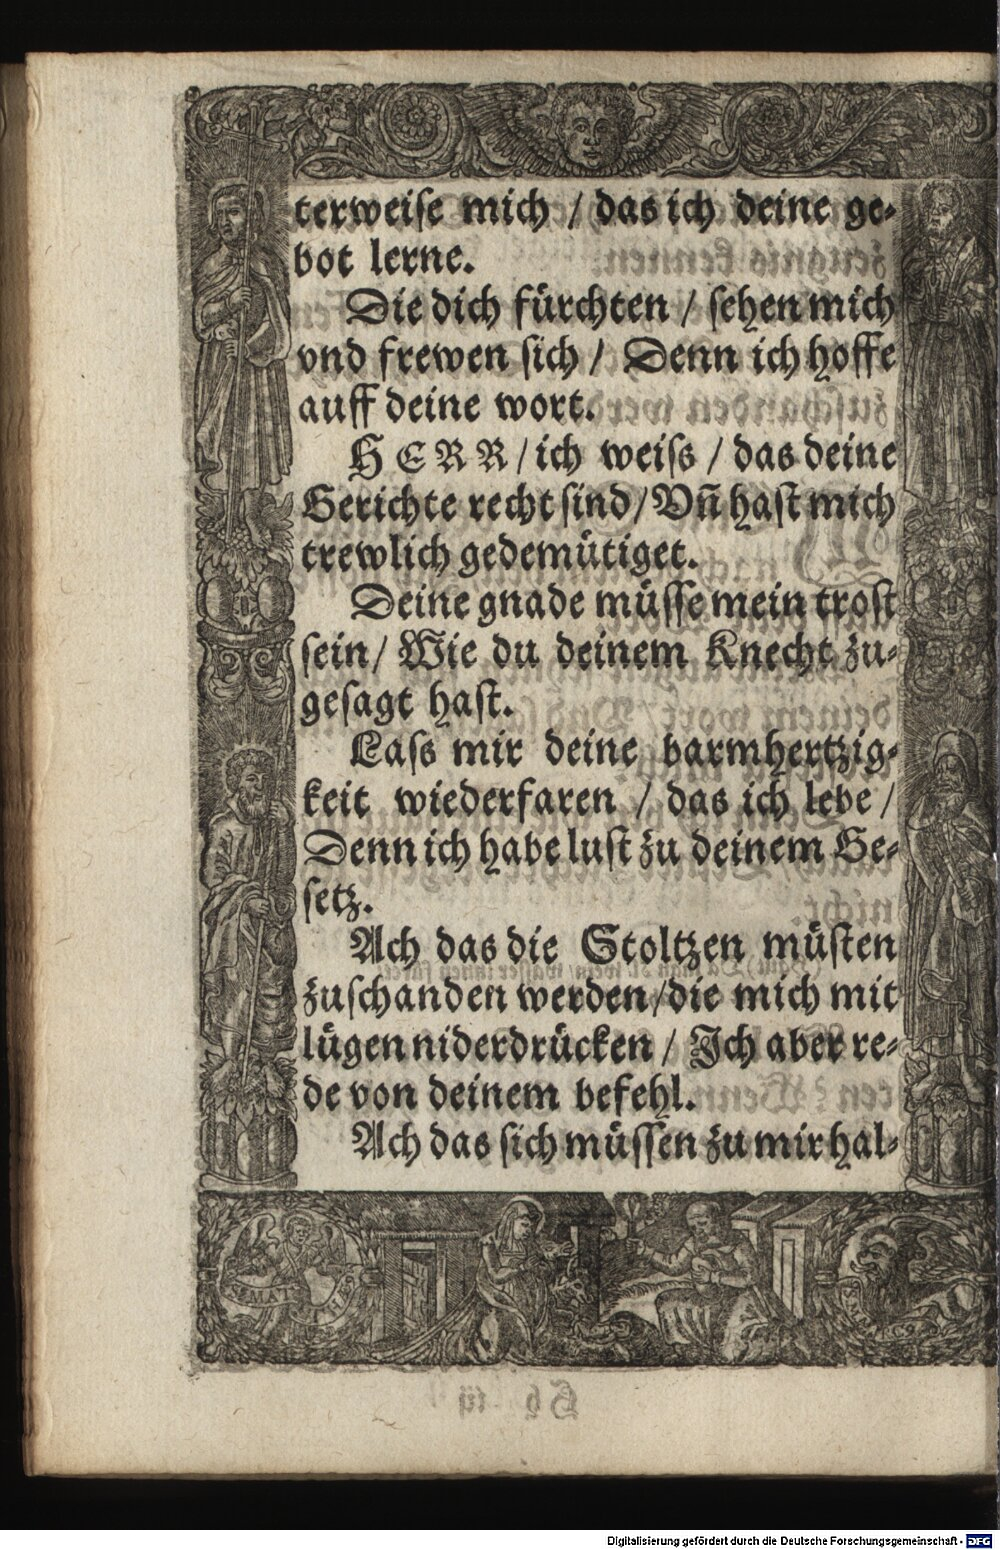 terweise mich / das ich deine ge-
bot lerne.
Die dich fürchten / sehen mich
vnd frewen sich / Denn ich hoffe
auff deine wort.
HERR / ich weiss / das deine
Gerichte recht sind / Vñ hast mich
trewlich gedemütiget.
Deine gnade müsse mein trost
sein / Wie du deinem Knecht zu-
gesagt hast.
Lass mir deine barmhertzig-
keit wiederfaren / das ich lebe /
Denn ich habe lust zu deinem Ge-
setz.
Ach das die Stoltzen müsten
zuschanden werden / die mich mit
lügen niderdrücken / Ich aber re-
de von deinem befehl.
Ach das sich müssen zu mir hal-
S MAT HE
Digitalisierung gefördert durch die Deutsche Forschungsgemeinschaft - DFG